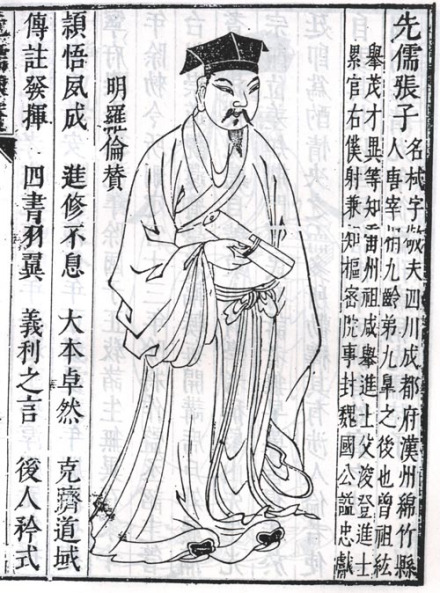 先儒張子 名栻字敬夫四川成都府漢州綿竹縣
人唐宰相九齡弟九皋之後也曾祖紘
舉茂才異等知雷州祖咸舉進士父浚登進士
累官右僕射兼知樞密院事封魏國公謚忠獻
明羅倫贊
穎悟夙成 進修不息 大本卓然 克躋道域
傳註發揮 四書羽翼 義利之言 後人矜式